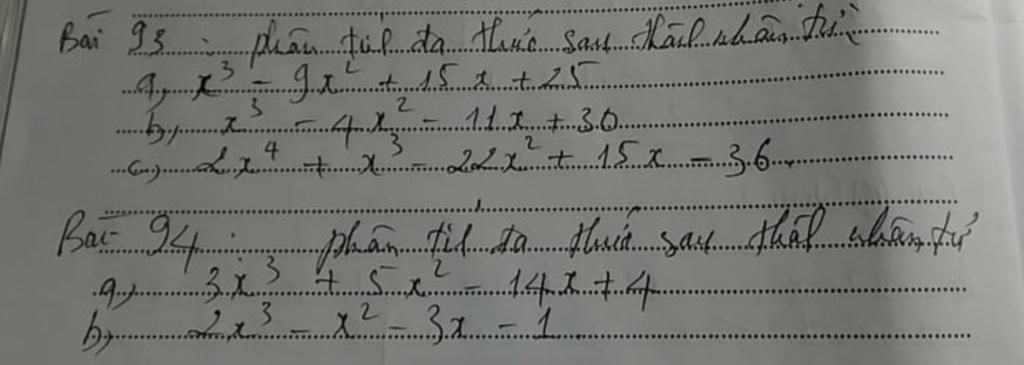 Bài 93 : phân tích đa thức sau thành nhân tử
a, x³ - 9x² + 15x + 25
b, x³ - 4x² - 11x + 30
c, 2x⁴ + x³ - 22x² + 15x - 36
Bài 94 : phân tích đa thức sau thành nhân tử
a, 3x³ + 5x² - 14x + 4
b, 2x³ - x² - 3x - 1